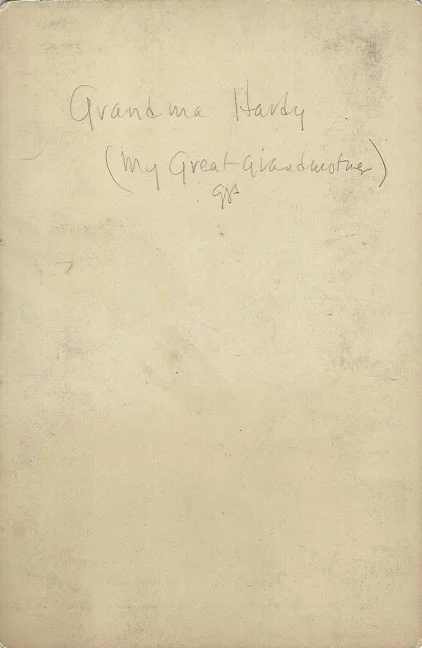 Grandma Hardy
(My Great Grandmother)